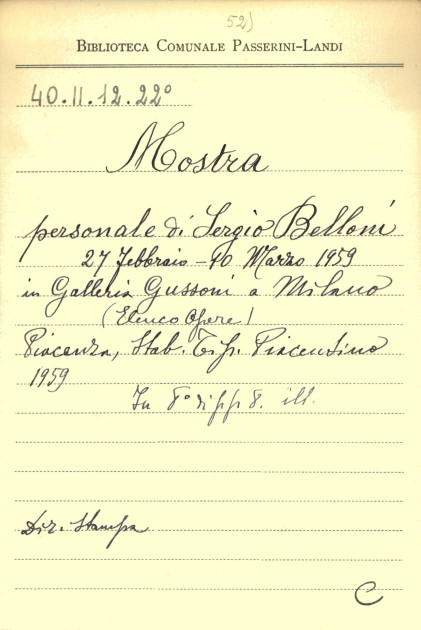 52)
BIBLIOTECA COMUNALE PASSERINI-LANDI
40.II.12.22°
Mostra
personale di Sergio Belloni
27 Febbraio - 10 Marzo 1959
in Galleria Gussoni a Milano
(Elenco Opere)
Piacenza, Stab. Tip. Piacentino
1959
In 8° di pp 8. ill.
Dir. Stampa
C